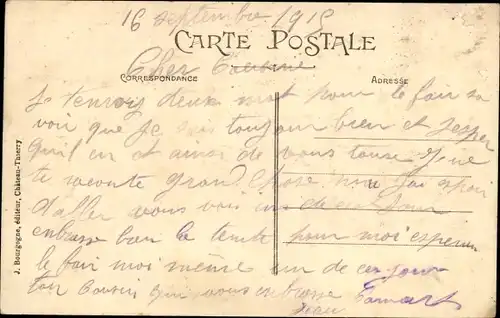 16 septembre 1915
CARTE POSTALE
Cher Cousine
CORRESPONDANCE
ADRESSE
Je tenvoi deux mot pour le fair sa
voir que je suis toujour bien et jesper
quil en at ainsi de vous touse je ne
te raconte grand chose non jai espoir
daller vous voir un de ces jour
enbrasse bien la tente pour moi esperan
le fair moi même un de ces jour
ton Cousin qui vous enbrasse
J. Bourgogne, éditeur, Château-Thierry